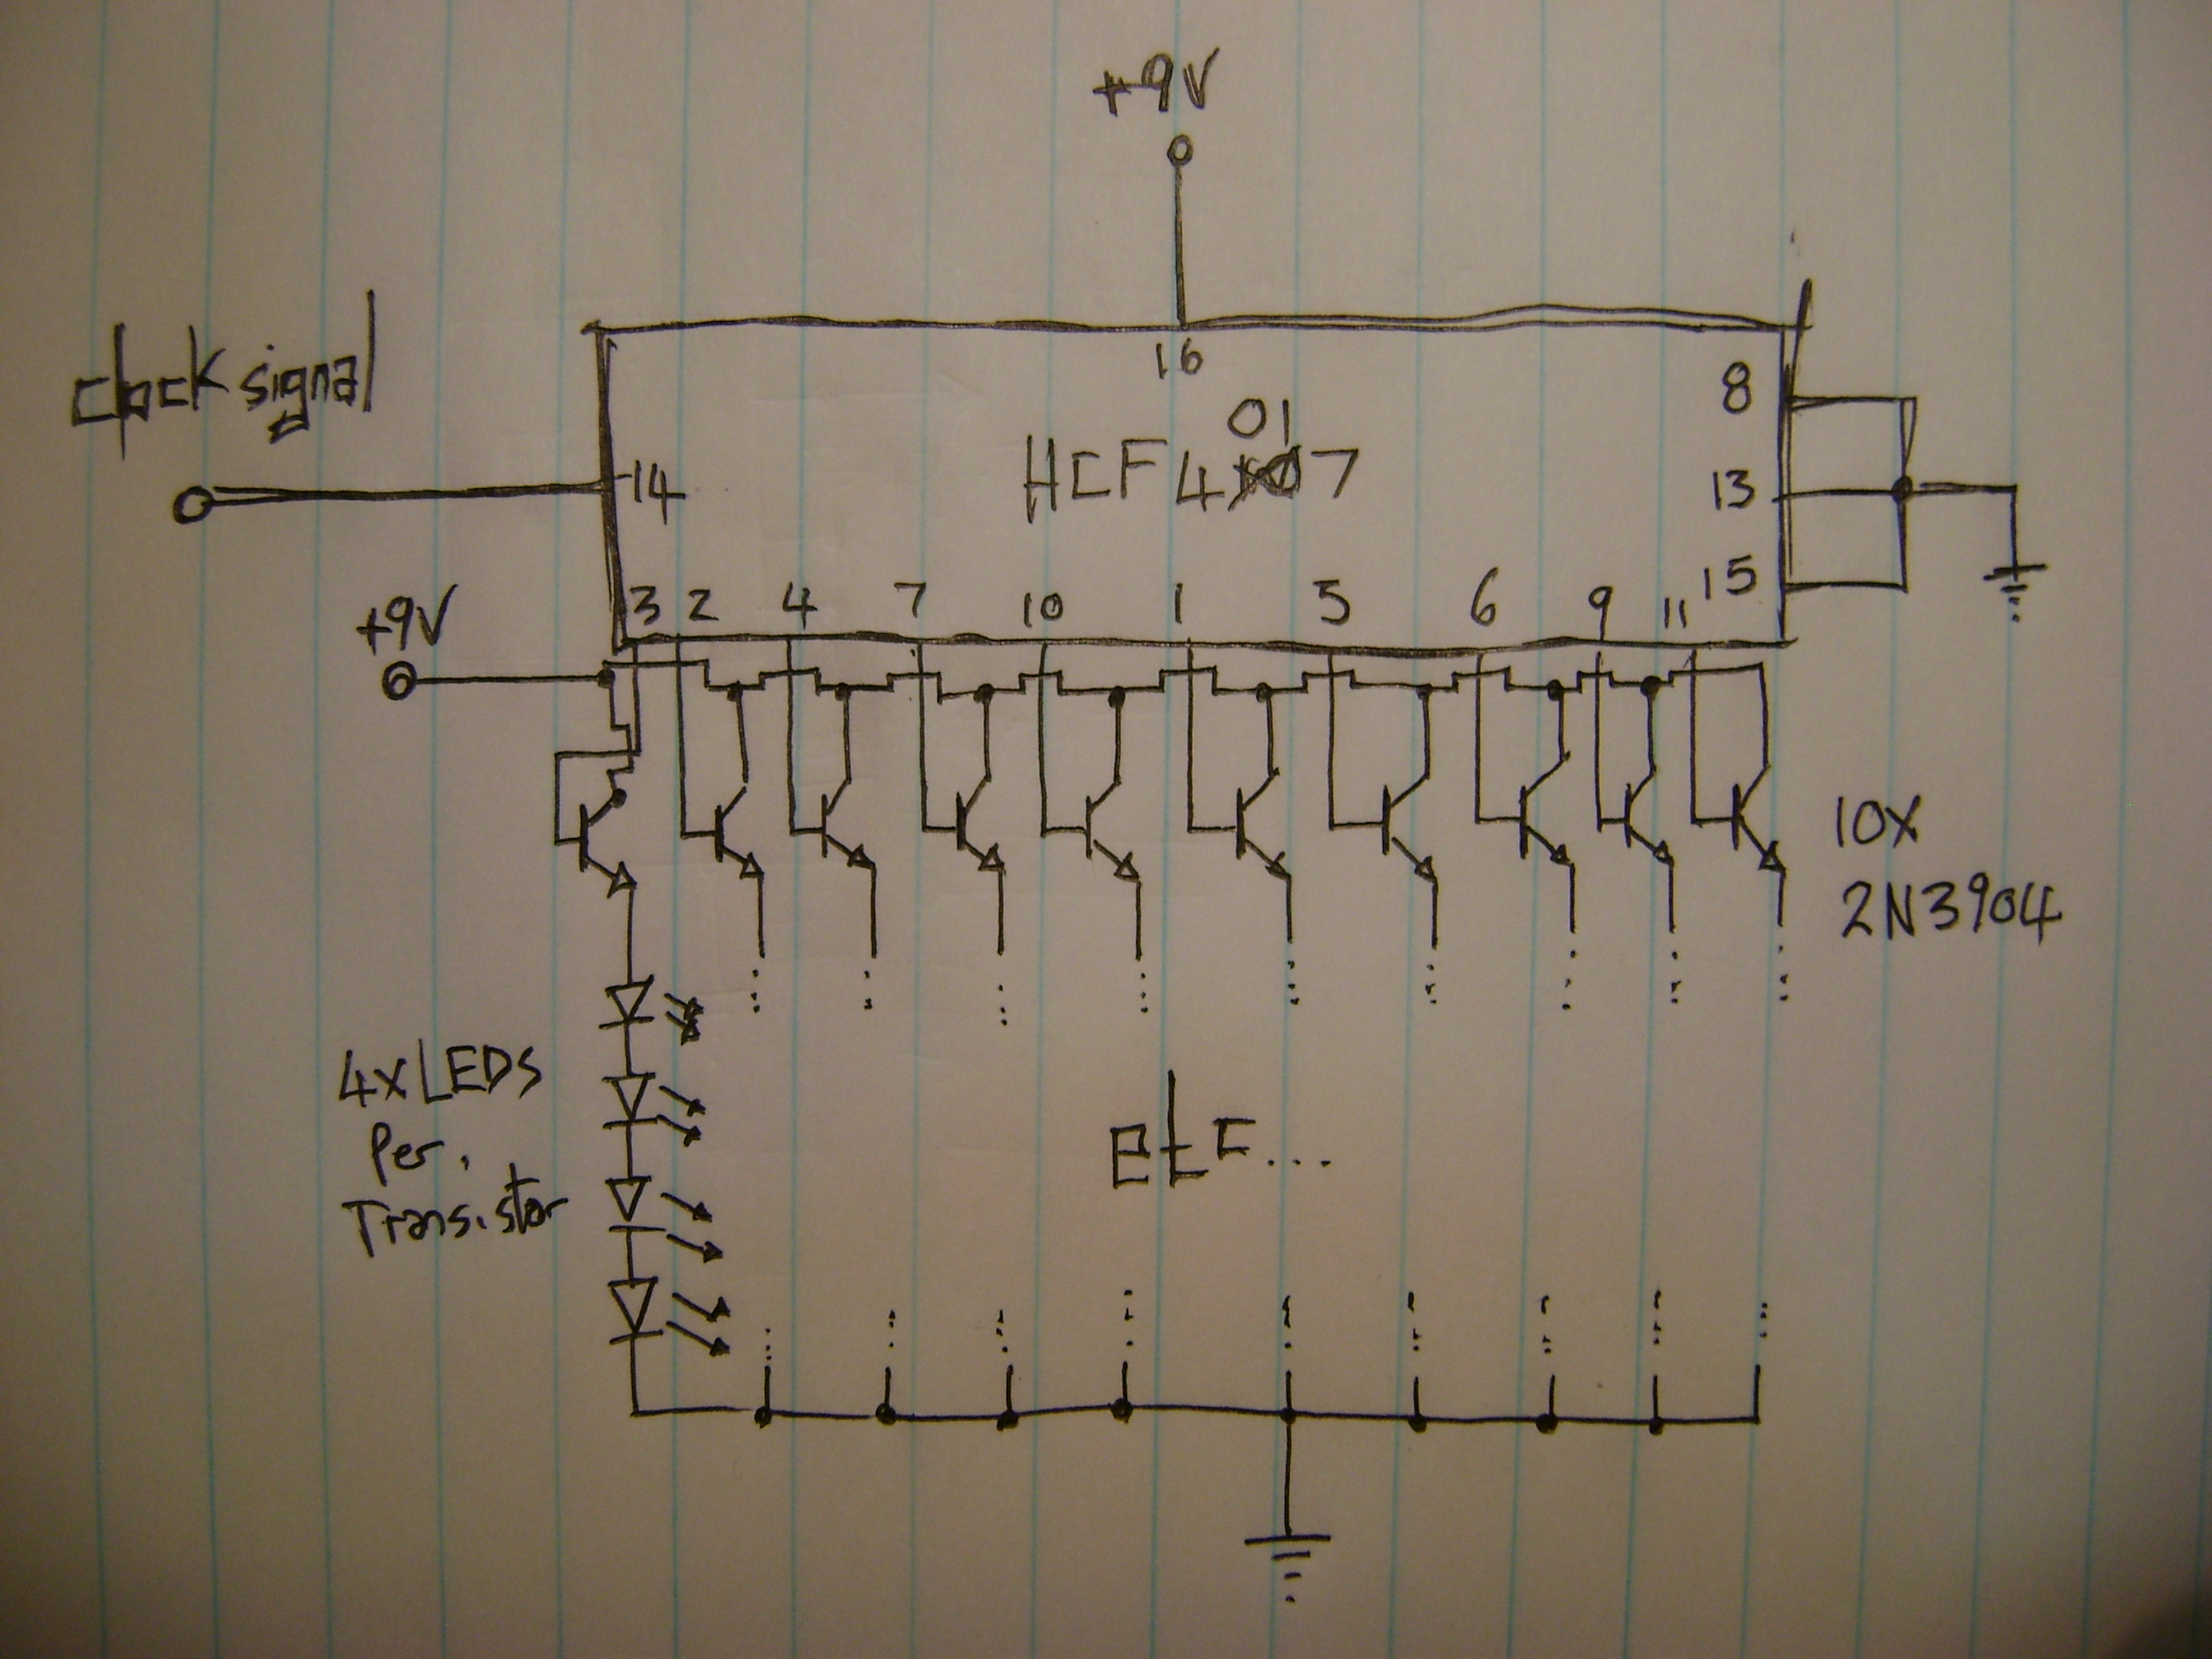 +9V
clock signal
16
8
01
HCF4017
14
13
15
+9V
3 2 4 7 10 1 5 6 9 11
10X
2N3904
4X LEDS
Per.
Transistor
etc...